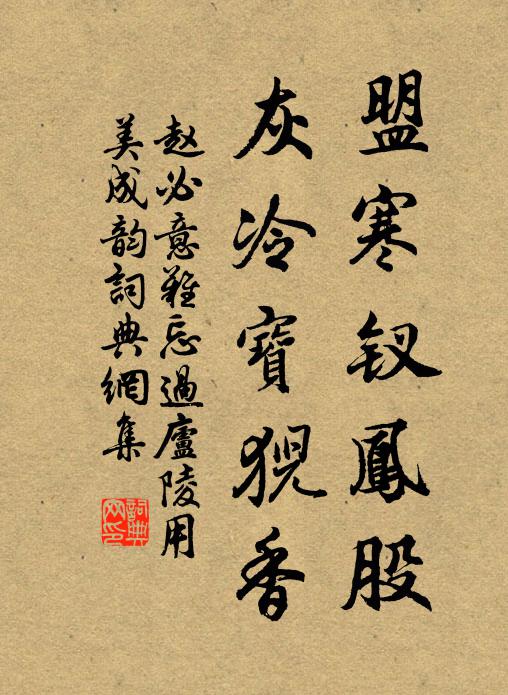 盟寒钗鳳股
灰冷寶猊香
赵必意難忘過廬陵用
美成韵詞典網集
詞典网印